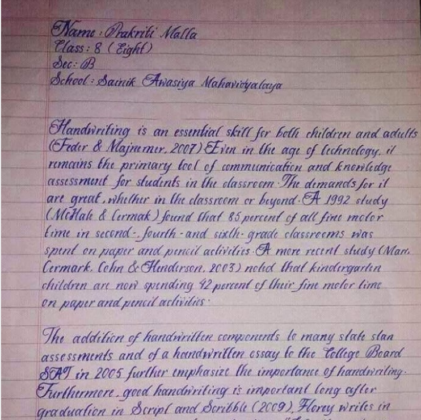 Name : Prakriti Malla
Class : 8 (Eight)
Sec : B
School : Sainik Awasiya Mahavidyalaya
Handwriting is an essential skill for both children and adults
(Feder & Majnemer, 2007) Even in the age of technology, it
remains the primary tool of communication and knowledge
assessment for students in the classroom. The demands for it
are great, whether in the classroom or beyond. A 1992 study
(McHale & Cermak) found that 85 percent of all fine motor
time in second-, fourth- and sixth-grade classrooms was
spent on paper and pencil activities A more recent study (Marr,
Cermark, Cohn & Henderson, 2003) noted that kindergarten
children are now spending 42 percent of their fine motor time
on paper and pencil activities.
The addition of handwritten components to many state
assessments and of a handwritten essay to the College Board
SAT in 2005 further emphasize the importance of handwriting.
Furthermore, good handwriting is important long after
graduation in Script and Scribble (2009), Florey writes in